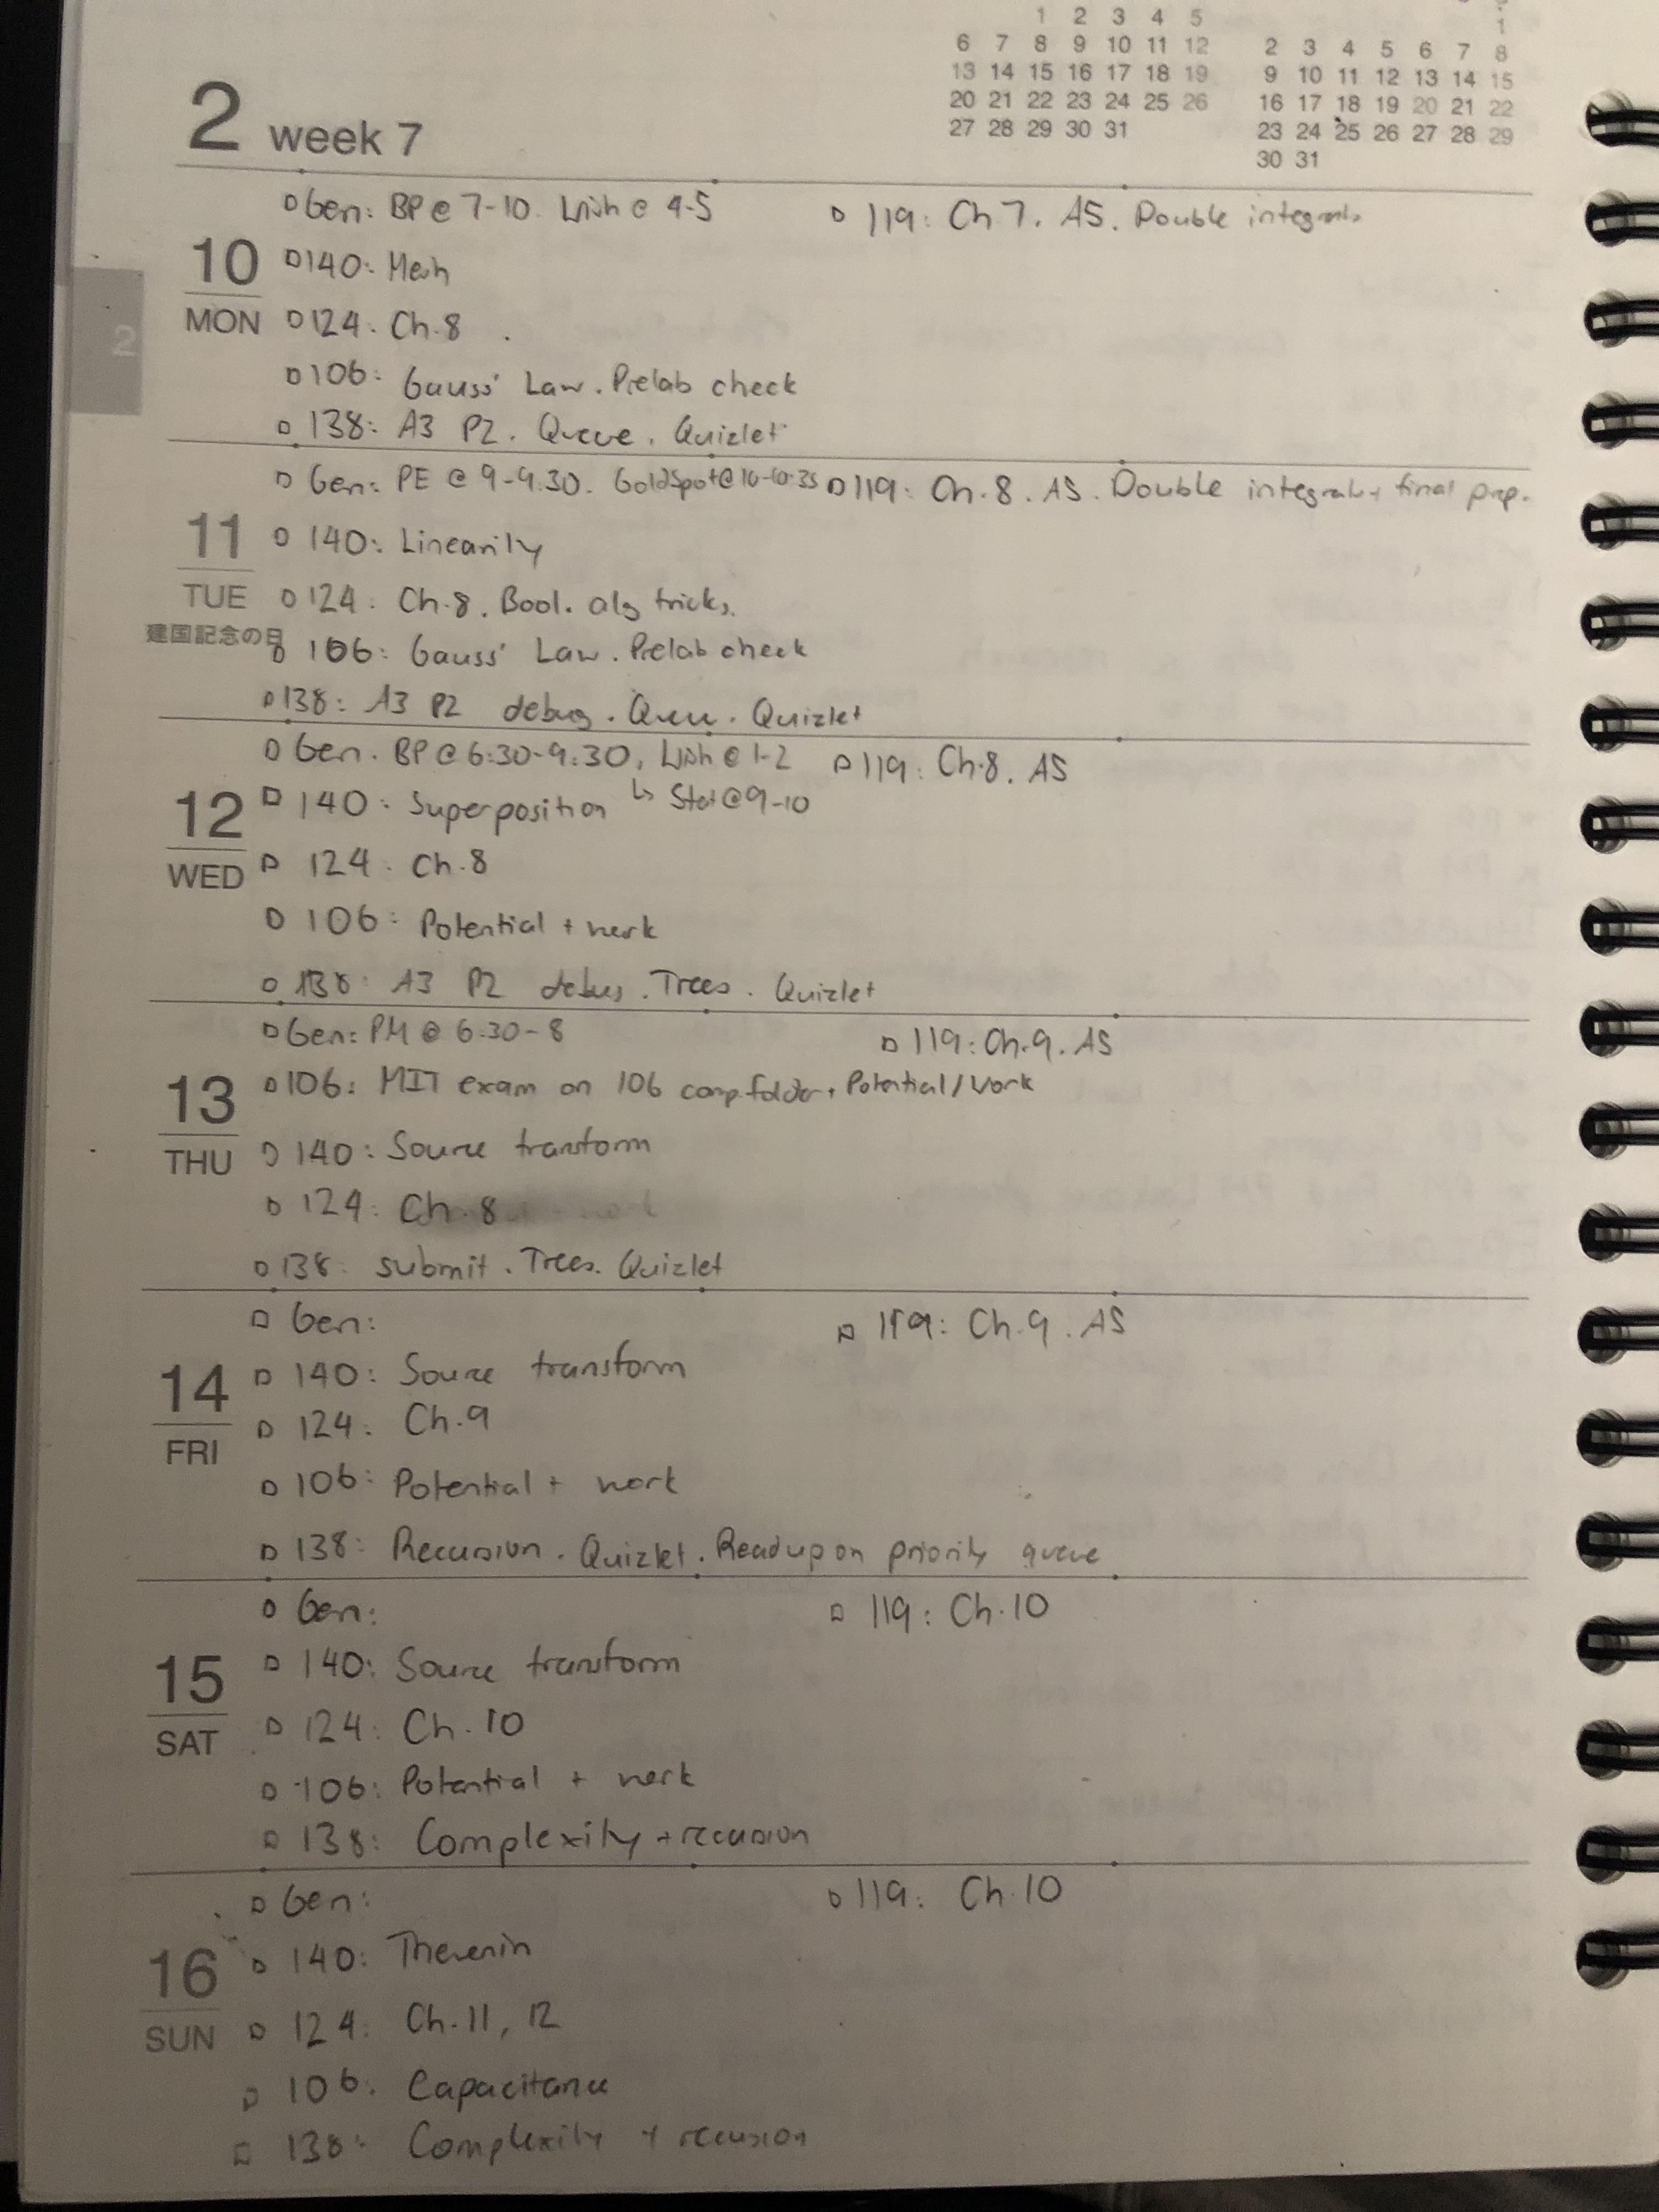 1 2 3 4 5
6 7 8 9 10 11 12
13 14 15 16 17 18 19
20 21 22 23 24 25 26
27 28 29 30 31
1
2 3 4 5 6 7 8
9 10 11 12 13 14 15
16 17 18 19 20 21 22
23 24 25 26 27 28 29
30 31
2 week 7
2
10
MON
Gen: BP @ 7-10. Wish @ 4-5
119: Ch 7. AS. Double integrals
140: Mesh
124: Ch.8
106: Gauss' Law. Prelab check
138: A3 P2. Queue. Quizlet
11
TUE
建国記念の日
Gen: PE @ 9-9:30. GoldSpot@10-10:35
119: Ch.8. AS. Double integrals + final prep.
140: Linearity
124: Ch.8. Bool. alg tricks.
106: Gauss' Law. Prelab check
138: A3 P2 debug. Queue. Quizlet
12
WED
Gen. BP @ 6:30-9:30, Wish @ 1-2
↳ Stat@9-10
119: Ch.8. AS
140: Superposition
124: Ch.8
106: Potential + work
138: A3 P2 debug. Trees. Quizlet
13
THU
Gen: PM @ 6:30-8
119: Ch.9. AS
106: MIT exam on 106 comp folder, Potential/Work
140: Source transform
124: Ch.8
138: submit. Trees. Quizlet
14
FRI
Gen:
119: Ch.9. AS
140: Source transform
124: Ch.9
106: Potential + work
138: Recursion. Quizlet. Read up on priority queue
15
SAT
Gen:
119: Ch.10
140: Source transform
124: Ch.10
106: Potential + work
138: Complexity + recursion
16
SUN
Gen:
119: Ch.10
140: Thevenin
124: Ch.11, 12
106: Capacitance
138: Complexity + recursion